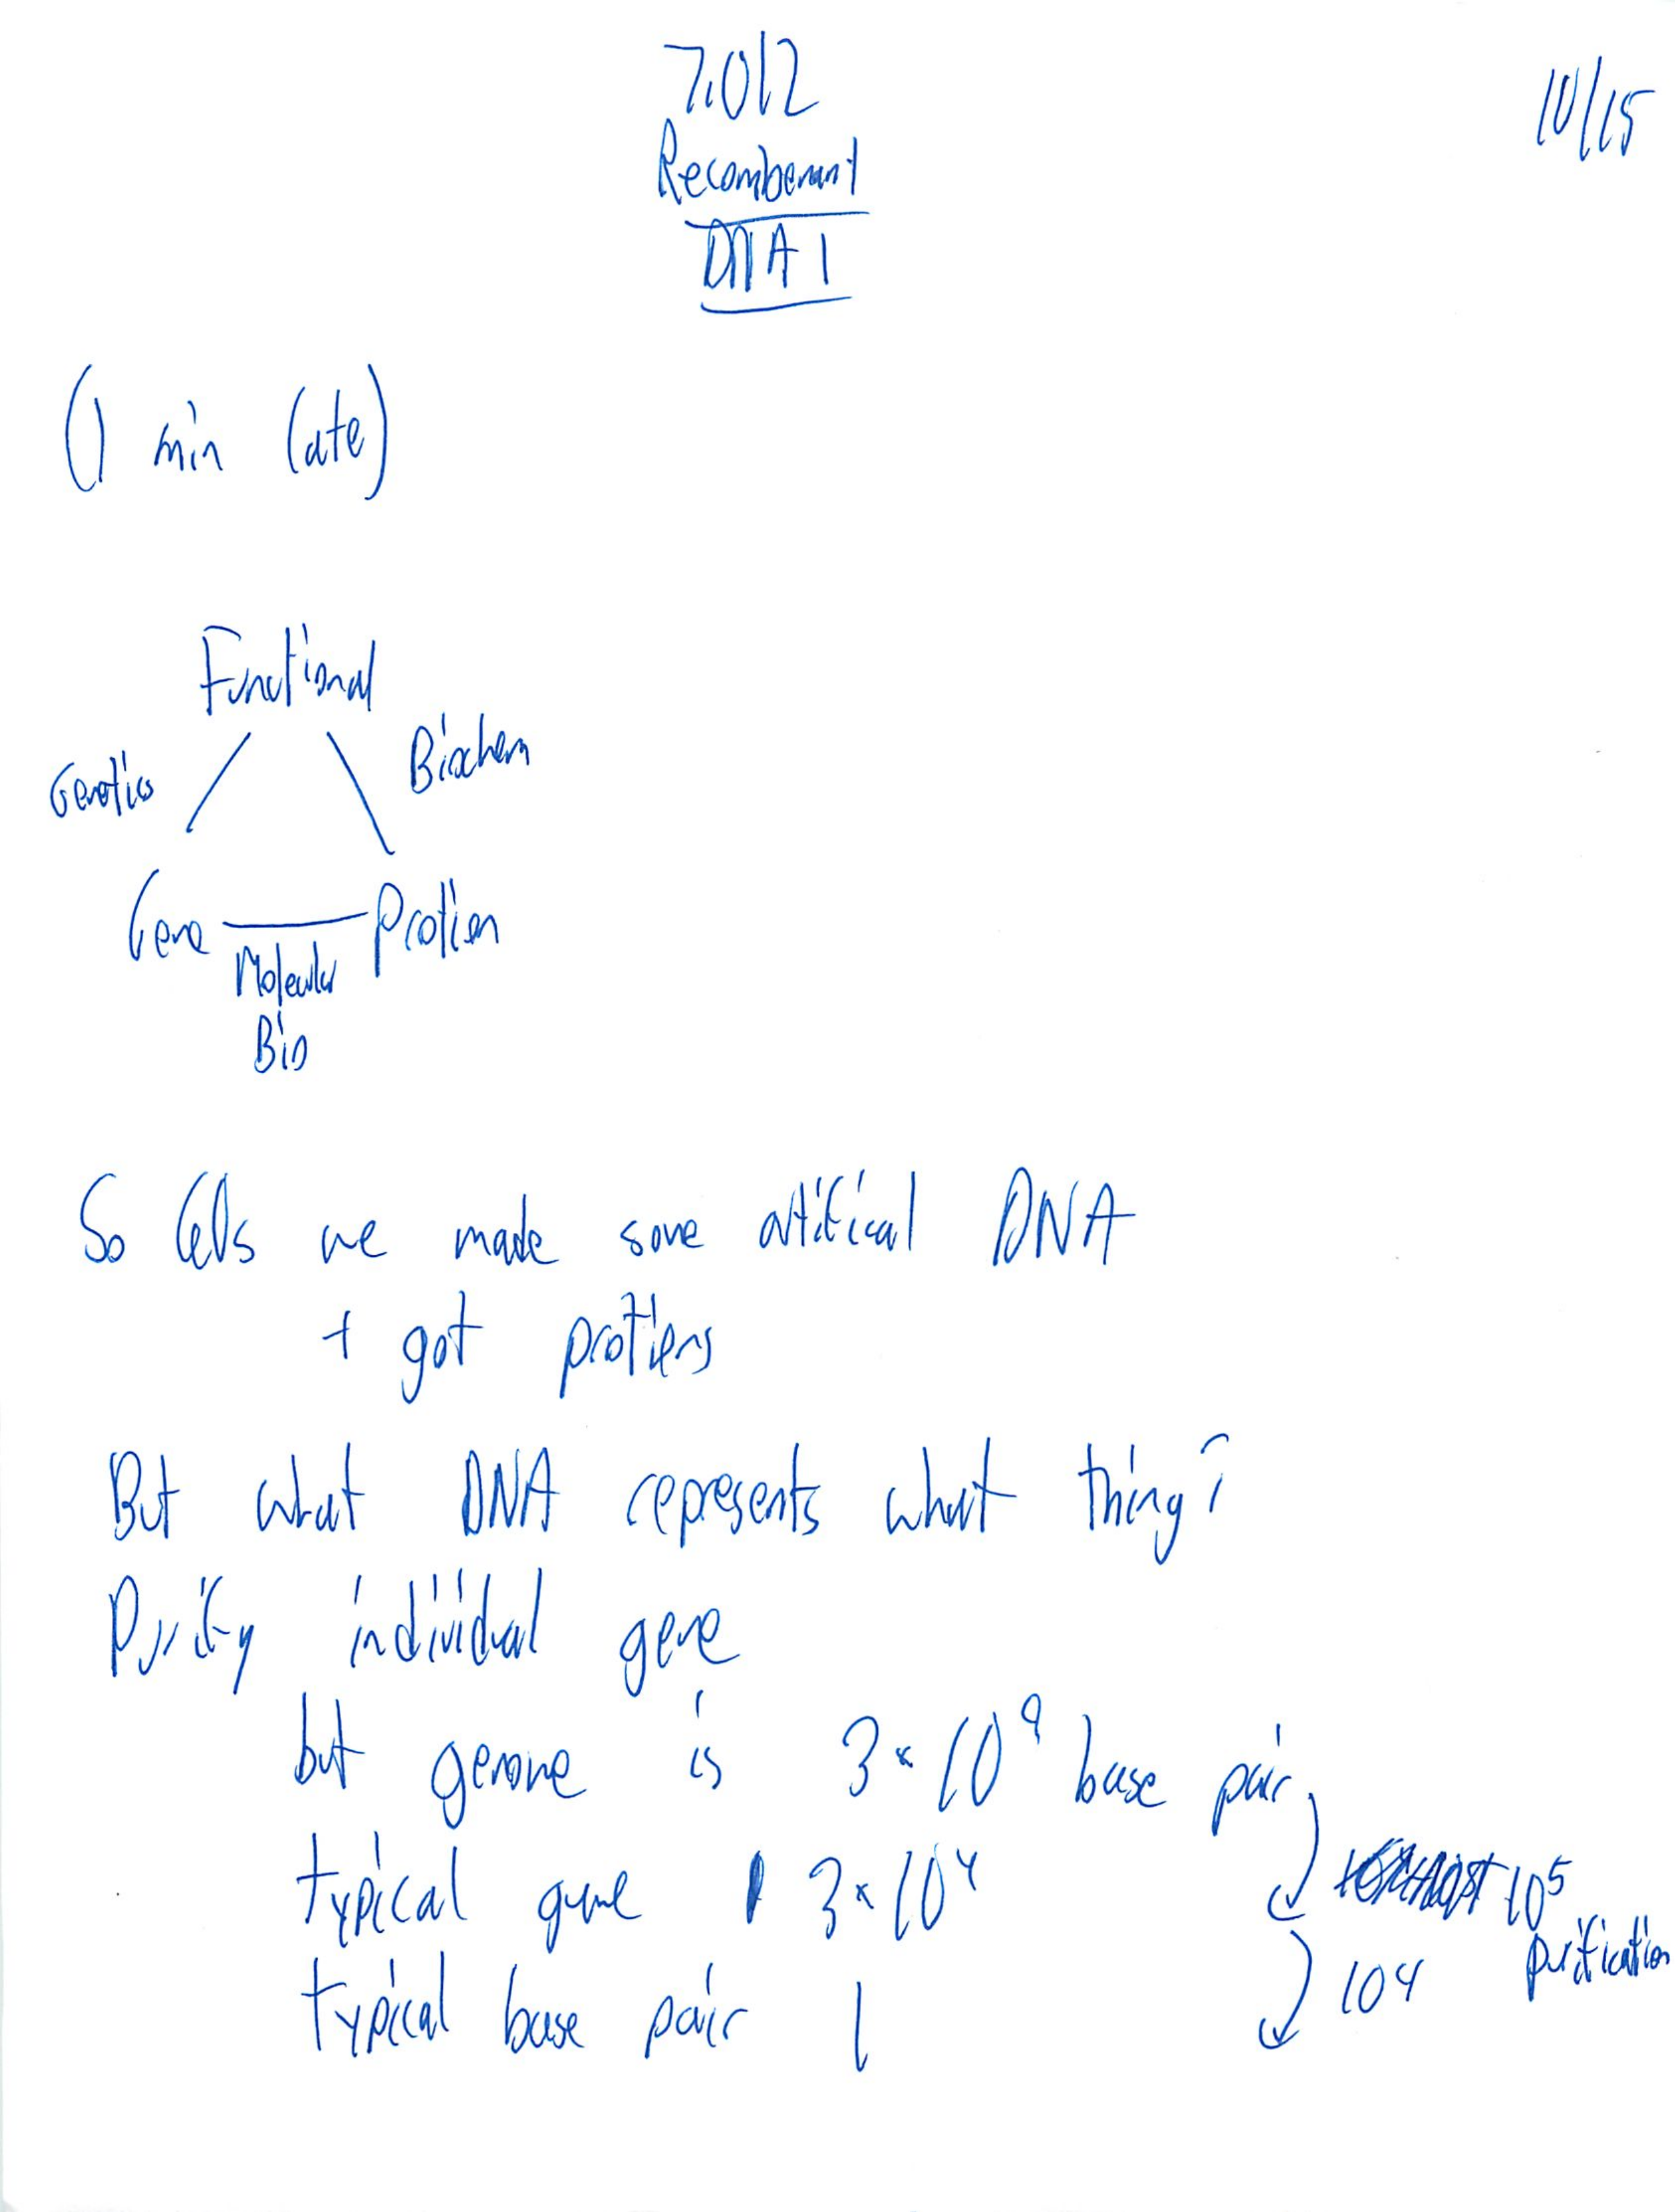 7.012
10/15
Recombenant
DNA 1
(1 min late)
Functional
Genetics
Biochem
Gene
Protien
Molecular
Bio
So we made some artifical DNA
+ got protiens
But what DNA represents what thing?
Purify individual gene
but genome is 3 × 10^9 base pair
typical gene 3 × 10^4
10^5
purification
typical base pair 1
10^4